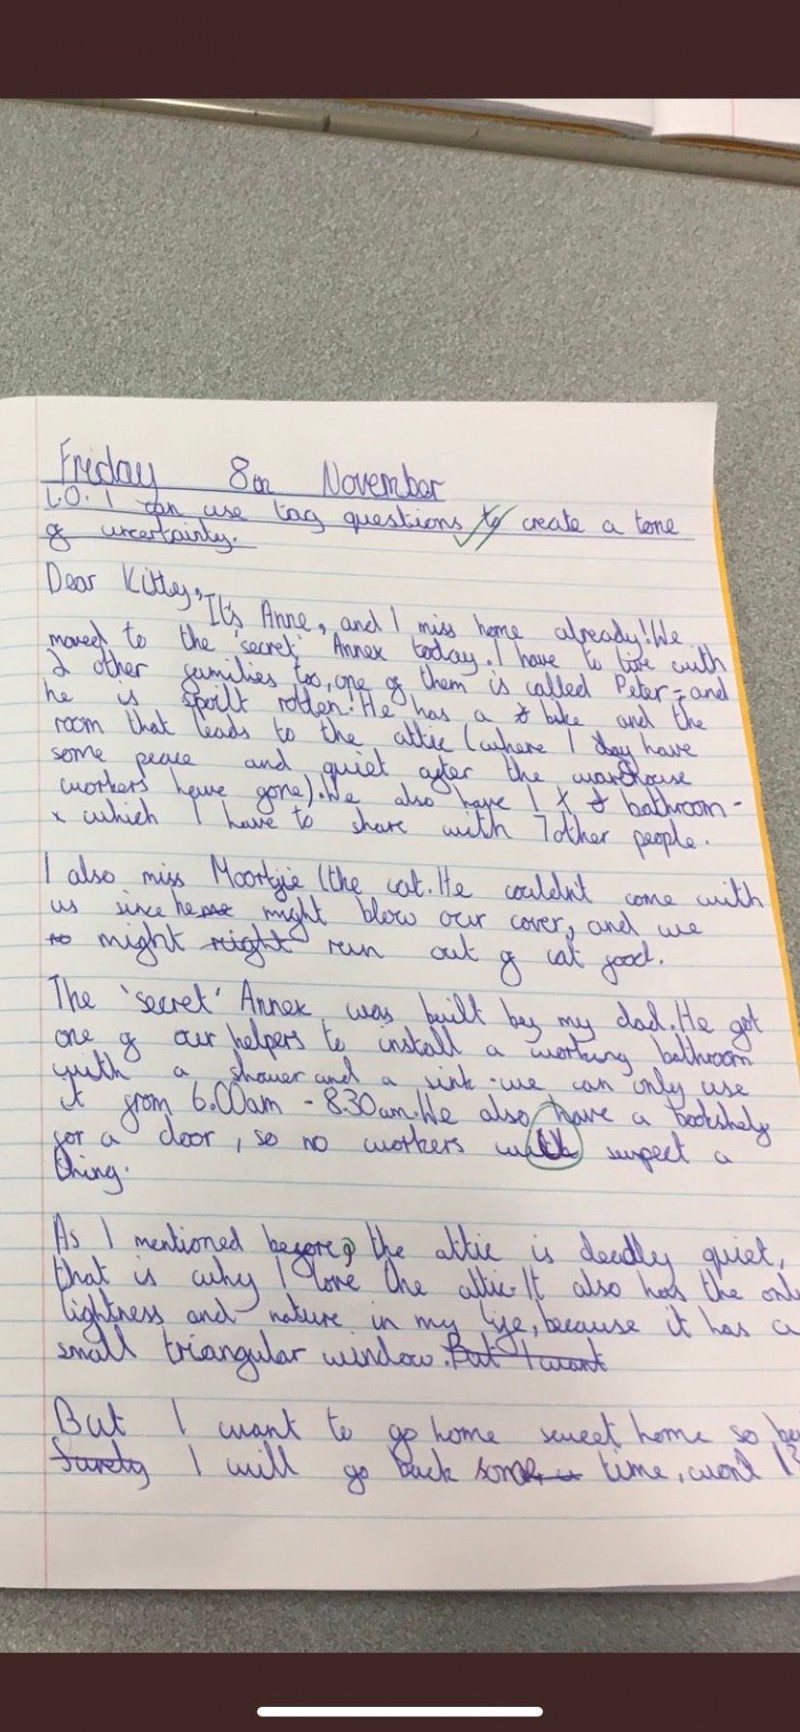 Friday 8th November
L.O. I can use tag questions to create a tone
of uncertainty.
Dear Kitty,
It's Anne, and I miss home already! We
moved to the 'secret' Annex today. I have to live with
2 other families too, one of them is called Peter - and
he is spoilt rotten! He has a bike and the
room that leads to the attic (where I have
some peace and quiet after the warehouse
workers have gone). We also have 1 bathroom -
which I have to share with 7 other people.
I also miss Moortjie (the cat. He couldn't come with
us since he might blow our cover, and we
might run out of cat food.
The 'secret' Annex was built by my dad. He got
one of our helpers to install a working bathroom
with a shower and a sink - we can only use
it from 6.00am - 8.30am. We also have a bookshelf
for a door, so no workers will suspect a
thing.
As I mentioned before, the attic is deadly quiet,
that is why I love the attic. It also has the onl
lightness and nature in my life, because it has a
small triangular window. But I want
But I want to go home sweet home so
Surely I will go back some time, won't I?